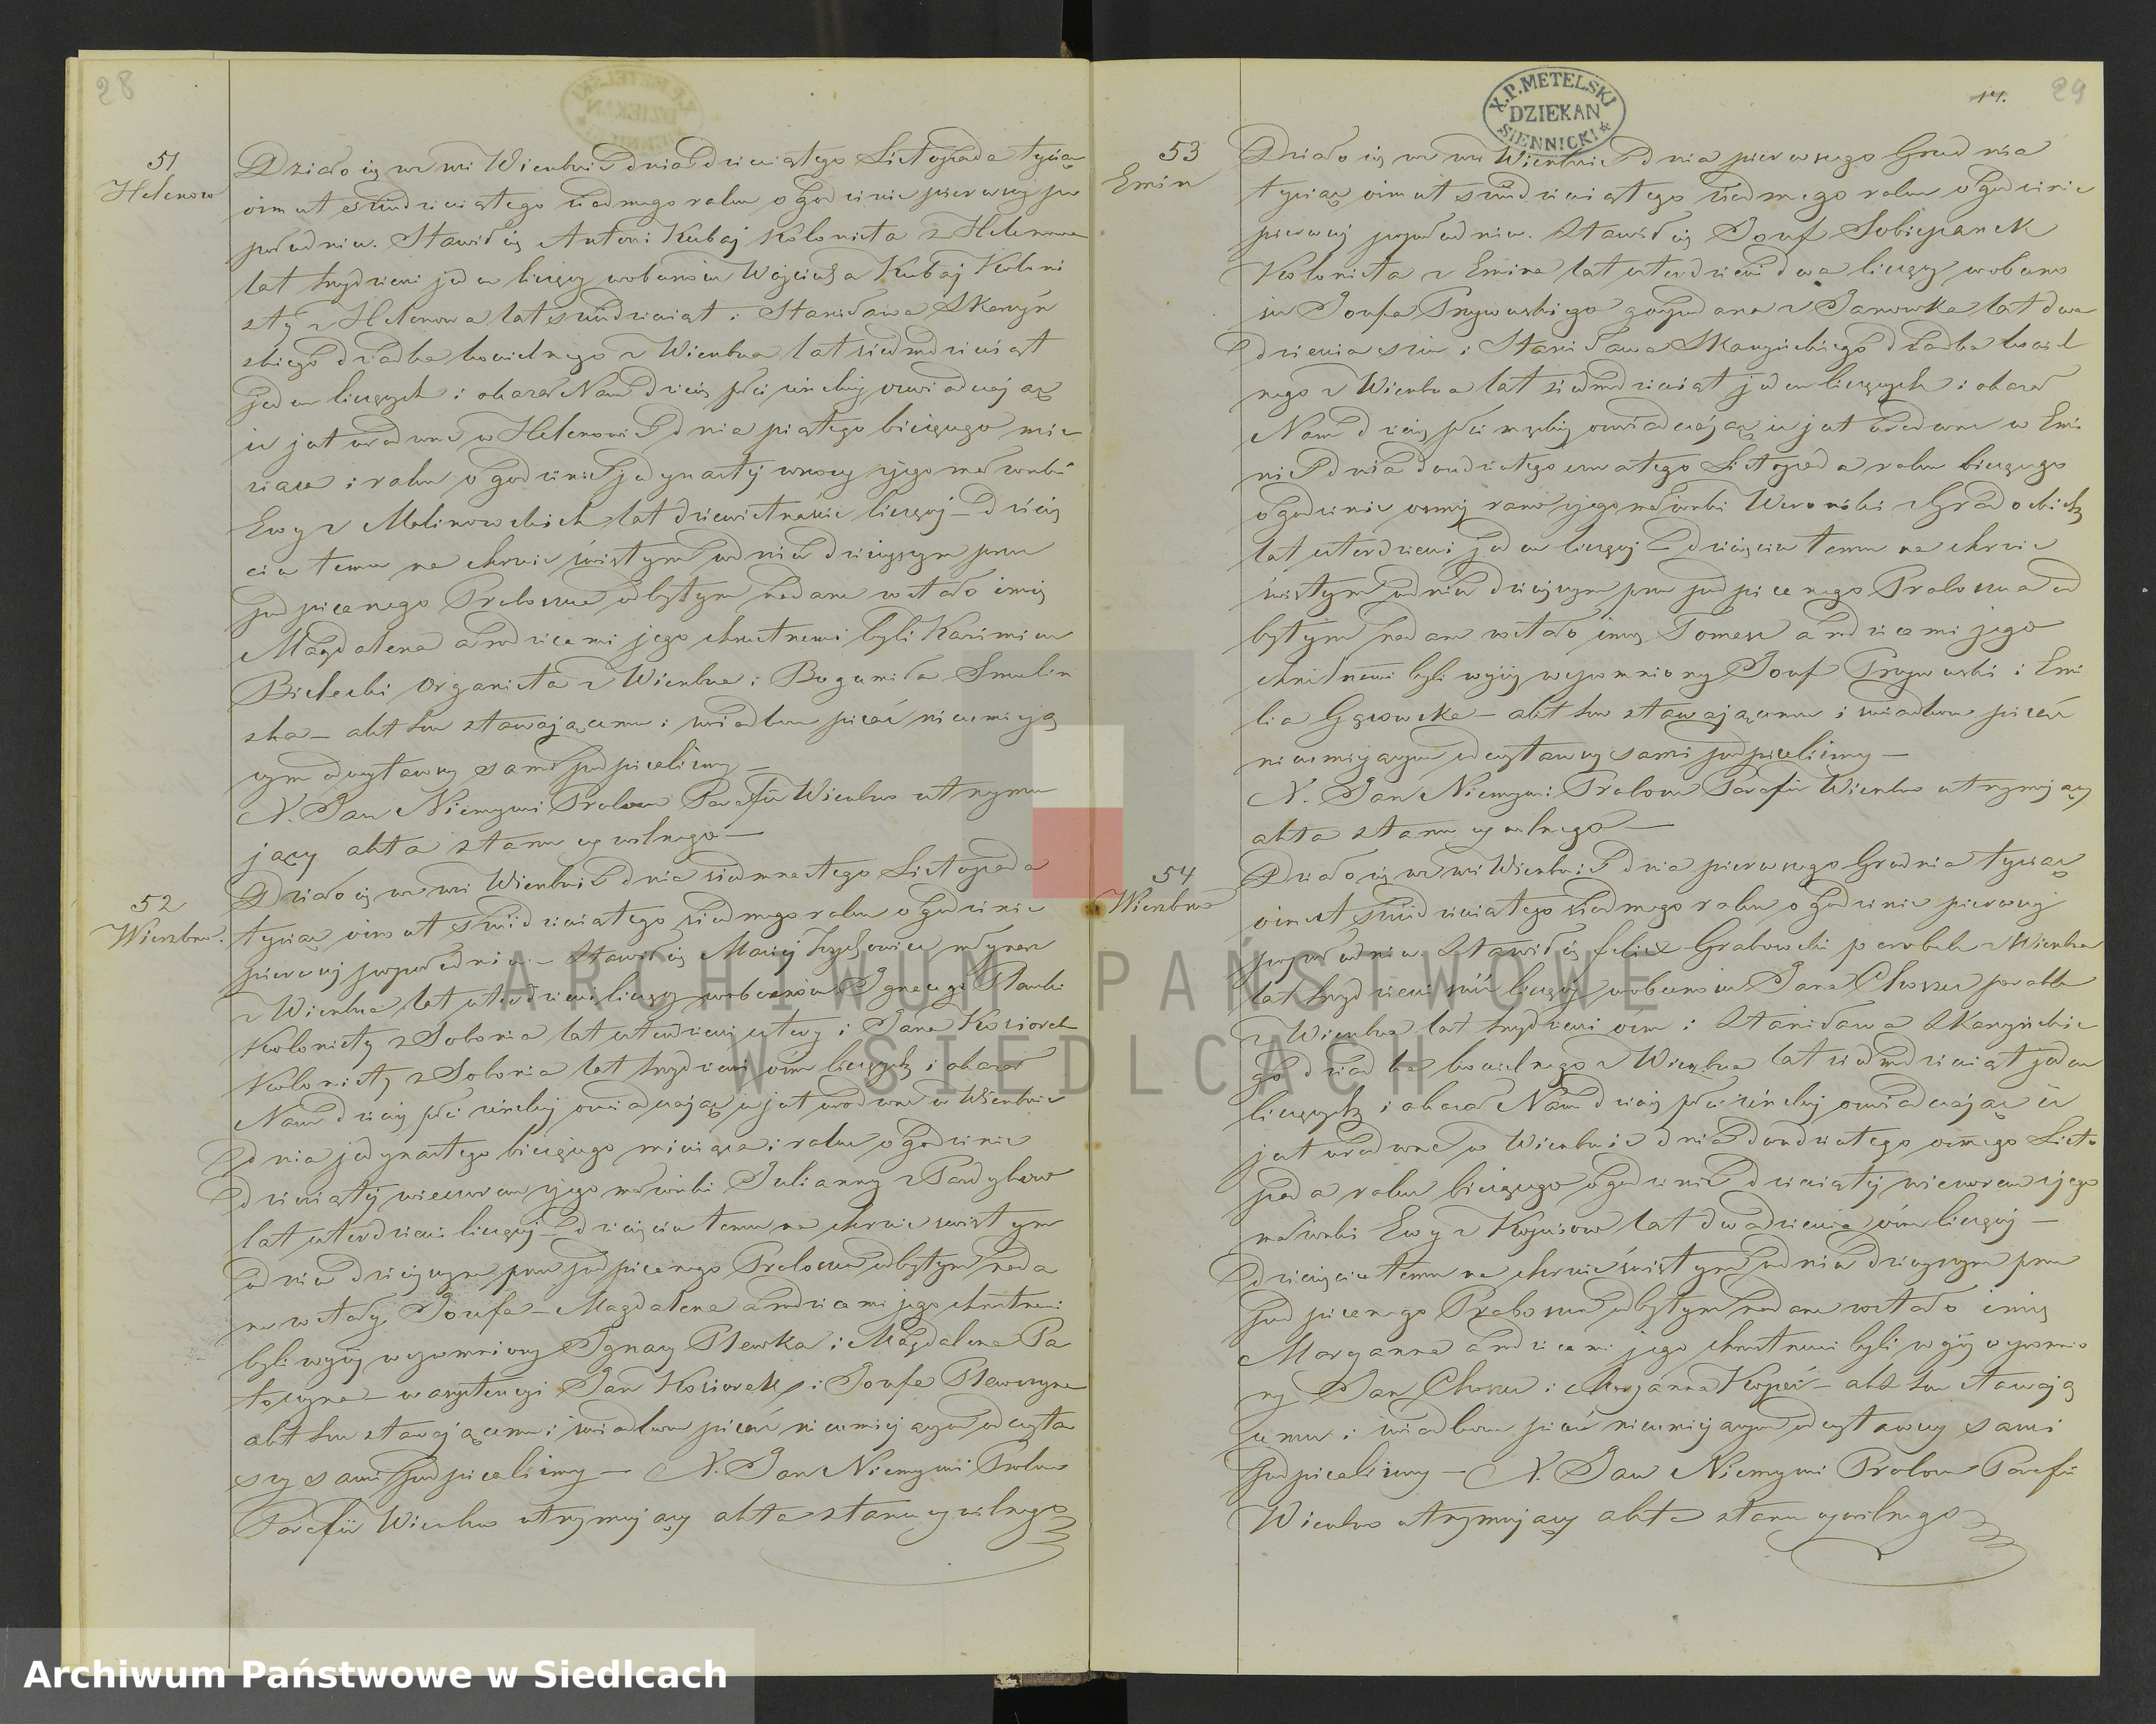 28
51
Helenow
Działo się we wsi Wierzbnie dnia dziewiątego Listopada tysiąc
ośmset sześćdziesiątego siódmego roku o godzinie pierwszej po
południu. Stawił się Antoni Kubaj kolonista z Helenowa
lat trzydzieści jeden liczący w obecności Wojciecha Kubaj Koloni
sty z Helenowa lat sześćdziesiąt i Stanisława Skarzyń
skiego dziadka kościelnego z Wierzbna lat siedmdziesiąt
jeden liczących i okazał Nam dziecię płci żeńskiej oświadczając
iż jest urodzone w Helenowie dnia piątego bieżącego mie
siąca i roku o godzinie jedynastej w nocy z jego małżonki
Ewy z Malinowskich lat dziewietnaście liczącej – Dziecię
ciu temu na chrzcie świętym w dniu dzisiejszym przez
podpisanego Proboszcza odbytym nadane zostało imię
Magdalena a rodzicami jego chrzestnemi byli Kazimierz
Bielecki Organista z Wierzbna i Bogumiła Smolin
ska – akt ten stawającemu i świadkom pisać nieumieją
cym odczytawszy sami podpisaliśmy –
X. Jan Niemyski Proboszcz Parafii Wierzbno utrzymu
jący akta stanu cywilnego –
52
Wierzbno.
Działo się we wsi Wierzbnie dnia siedmnastego Listopada
tysiąc ośmset sześćdziesiątego siódmego roku o godzinie
pierwszej popołudniu – Stawił się Maciej młynarz
z Wierzbna lat czterdzieści liczący w obecności Ignacego Plewki
Kolonisty z Sobonia lat czterdzieści cztery i Jana Kosiorek
Kolonisty z Sobonia lat trzydzieści ośm liczących i okazał
Nam dziecię płci żeńskiej oświadczając iż jest urodzone w Wierzbnie
dnia jedynastego bieżącego miesiąca i roku o godzinie
dziewiątej wieczorem z jego małżonki Julianny z
lat czterdzieści liczącej – dziecięciu temu na chrzcie świętym
w dniu dzisiejszym przez podpisanego Proboszcza odbytym nada
ne zostały Józefa – Magdalena a rodzicami jego chrzestnemi
byli wyżej wspomniony Ignacy Plewka i Magdalena Pa
– w asystencyi Jan Kosiorek i Józefa Plewczyna
akt ten stawającemu i świadkom pisać nieumiejącym odczytaw
szy sami podpisaliśmy – X. Jan Niemyski Proboszcz
Parafii Wierzbno utrzymujący akta stanu cywilnego
X. P. METELSKI
DZIEKAN
SIENNICKI
29
53
Emin
Działo się we wsi Wierzbnie dnia pierwszego Grudnia
tysiąc ośmset sześćdziesiątego siódmego roku o godzinie
pierwszej popołudniu. Stawił się Józef Sobiepanek
Kolonista z Emina lat czterdzieści dwa liczący w obecno
ści Józefa gospodarza z Janówka lat dwa
dzieścia sześć i Stanisława Skarzyńskiego dziadka kościel
nego z Wierzbna lat siedmdziesiąt jeden liczących i okazał
Nam dziecię płci męskiej oświadczając iż jest urodzone w Emi
nie dnia dwudziestego czwartego Listopada roku bieżącego
o godzinie ósmej rano z jego małżonki Weroniki z
lat czterdzieści jeden liczącej – dziecięciu temu na chrzcie
świętym w dniu dzisiejszym przez podpisanego Proboszcza od
bytym nadane zostało imię Tomasz a rodzicami jego
chrzestnemi byli wyżej wspomniony Józef i Emi
lia – akt ten stawającemu i świadkom pisać
nieumiejącym odczytawszy sami podpisaliśmy –
X. Jan Niemyski Proboszcz Parafii Wierzbno utrzymujący
akta stanu cywilnego –
54
Wierzbno
Działo się we wsi Wierzbnie dnia pierwszego Grudnia tysiąc
ośmset sześćdziesiątego siódmego roku o godzinie pierwszej
popołudniu Stawił się Felix Grabowski parobek z Wierzbna
lat trzydzieści sześć liczący w obecności Jana parobka
z Wierzbna lat trzydzieści ośm i Stanisława Skarzyńskie
go dziadka kościelnego z Wierzbna lat siedmdziesiąt jeden
liczących i okazał Nam dziecię płci żeńskiej oświadczając iż
jest urodzone w Wierzbnie dnia dwudziestego ósmego Listo
pada roku bieżącego o godzinie dziewiątej wieczorem z jego
małżonki Ewy z lat dwadzieścia ośm liczącej –
dziecięciu temu na chrzcie świętym w dniu dzisiejszym przez
podpisanego Proboszcza odbytym nadane zostało imię
Maryanna a rodzicami jego chrzestnemi byli wyżej wspomnio
ny Jan i Maryanna – akt ten stawają
cemu i świadkom pisać nieumiejącym odczytawszy sami
podpisaliśmy – X. Jan Niemyski Proboszcz Parafii
Wierzbno utrzymujący akta stanu cywilnego
ARCHIWUM PAŃSTWOWE
W SIEDLCACH
Archiwum Państwowe w Siedlcach